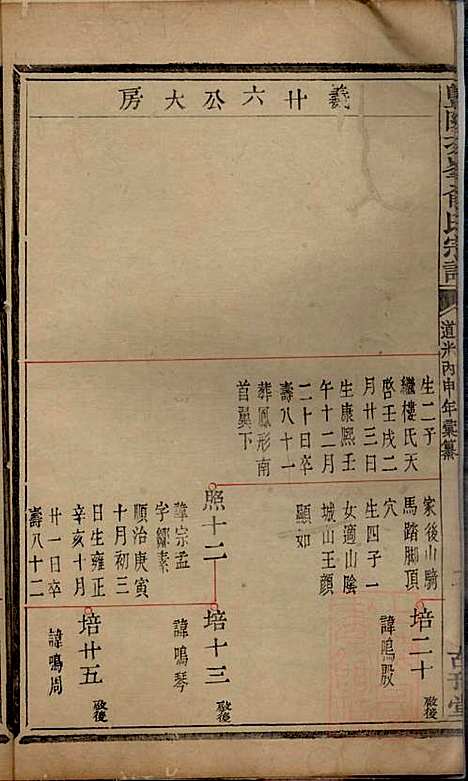 義廿六公大房
俞氏宗譜
道光丙申年彙纂
生二子
繼樓氏天
啓壬戌二
月廿三日
生康熙壬
午十二月
二十日卒
壽八十一
葬鳳形南
首翼下
家後山騎
馬踏脚頂
穴
生四子一
女適山陰
城山王顏
顯如
照十二
諱宗孟
字鄒素
順治庚寅
十月初三
日生雍正
辛亥十月
廿一日卒
壽八十二
培二十
啟後
諱鳴殷
培十三
啟後
諱鳴琴
培廿五
啟後
諱鳴周